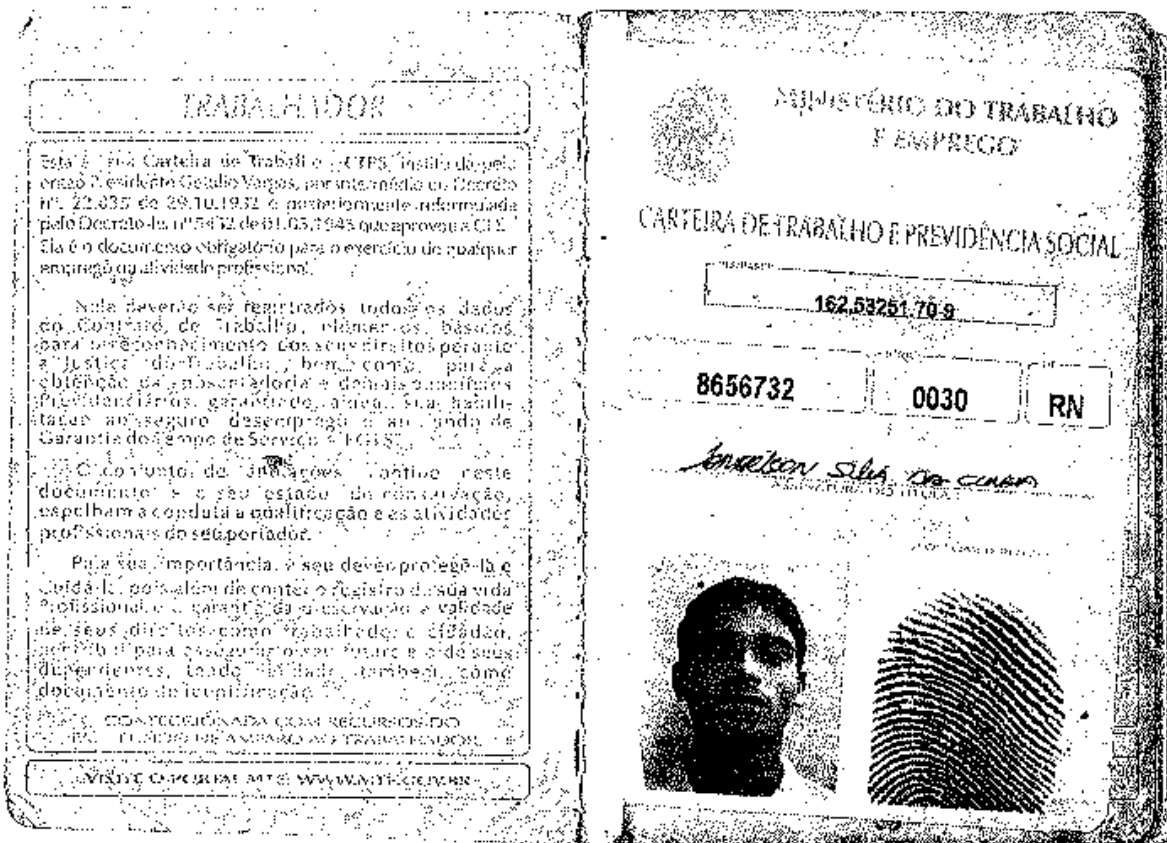 TRABALHADOR
Esta é sua Carteira de Trabalho CTPS, instituída pelo
então Presidente Getúlio Vargas, por intermédio do Decreto
nº. 22.035 de 29.10.1932 e posteriormente reformulada
pelo Decreto-lei nº 5452 de 01.05.1943 que aprovou a CLT.
Ela é o documento obrigatório para o exercício de qualquer
emprego ou atividade profissional.
Nele deverão ser registrados todos os dados
do Contrato de Trabalho, elementos básicos
para o reconhecimento dos seus direitos perante
a Justiça do Trabalho, bem como para a
obtenção da aposentadoria e demais benefícios
Previdenciários, garantindo, ainda, sua habili-
tação ao seguro desemprego e ao Fundo de
Garantia do Tempo de Serviço - FGTS.
O conjunto de anotações contido neste
documento e o seu estado de conservação,
espelham a conduta a qualificação e as atividades
profissionais do seu portador.
Pela sua importância, é seu dever protegê-la e
cuidá-la, pois além de conter o registro da sua vida
Profissional e a garantia da preservação e validade
de seus direitos como trabalhador e cidadão,
para assegurar o seu futuro e o de seus
dependentes, tendo validade, também, como
documento de identificação.
CONFECCIONADA COM RECURSOS DO
FUNDO DE AMPARO AO TRABALHADOR
VISITE O PORTAL MTE WWW.MTE.GOV.BR
MINISTÉRIO DO TRABALHO
E EMPREGO
CARTEIRA DE TRABALHO E PREVIDÊNCIA SOCIAL
162.53251.70-9
8656732 0030 RN
Silva da Cunha
ASSINATURA DO TITULAR